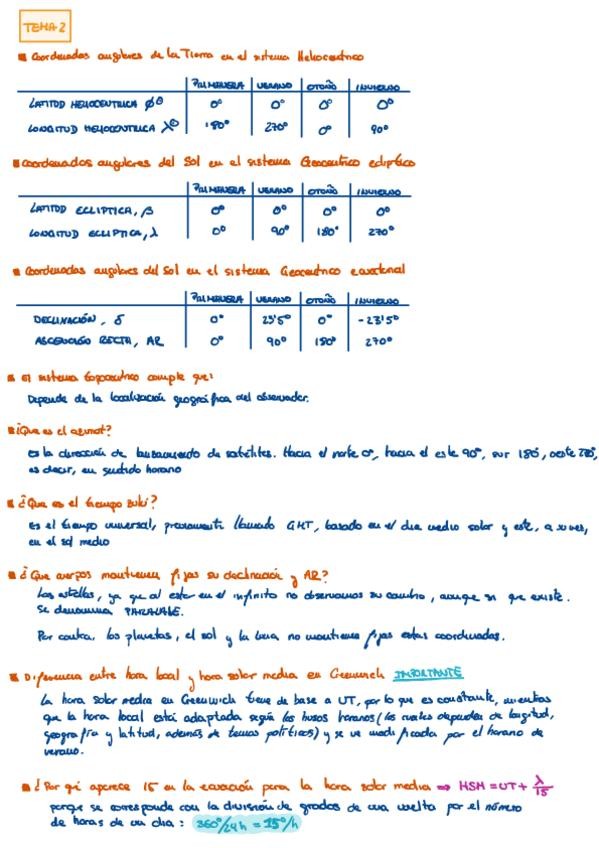 TEMA 2
Coordenadas angulares de la Tierra en el sistema Heliocentrico
PRIMAVERA VERANO OTOÑO INVIERNO
LATITUD HELIOCENTRICA ϕ⊕ 0° 0° 0° 0°
LONGITUD HELIOCENTRICA λ⊕ 180° 270° 0° 90°
Coordenadas angulares del Sol en el sistema Geocentrico ecliptico
PRIMAVERA VERANO OTOÑO INVIERNO
LATITUD ECLIPTICA, β 0° 0° 0° 0°
LONGITUD ECLIPTICA, λ 0° 90° 180° 270°
Coordenadas angulares del Sol en el sistema Geocentrico ecuatorial
PRIMAVERA VERANO OTOÑO INVIERNO
DECLINACIÓN, δ 0° 23'5° 0° -23'5°
ASCENCIÓN RECTA, AR 0° 90° 180° 270°
El sistema topocentrico cumple que:
Depende de la localización geográfica del observador.
¿Que es el azimut?
es la dirección de lanzamiento de satélites. Hacia el norte 0°, hacia el este 90°, sur 180°, oeste 270°,
es decir, en sentido horario
¿Que es el tiempo zulú?
Es el tiempo universal, previamente llamado GMT, basado en el dia medio solar y este, a su vez,
en el sol medio
¿Que cuerpos mantienen fijas su declinación y AR?
Las estrellas, ya que al estar en el infinito no observamos su cambio, aunque si que existe.
Se denomina PARALAJE.
Por contra, los planetas, el sol y la luna no mantienen fijas estas coordenadas.
Diferencia entre hora local y hora solar media en Greenwich IMPORTANTE
La hora solar media en Greenwich tiene de base a UT, por lo que es constante, mientras
que la hora local está adaptada según los husos horarios (los cuales dependen de longitud,
geografía y latitud, además de temas políticos) y se ve modificada por el horario de
verano.
¿Por qué aparece 15 en la ecuación para la hora solar media ⇒ HSM = UT + λ/15
porque se corresponde con la división de grados de una vuelta por el número
de horas de un dia: 360°/24h = 15°/h